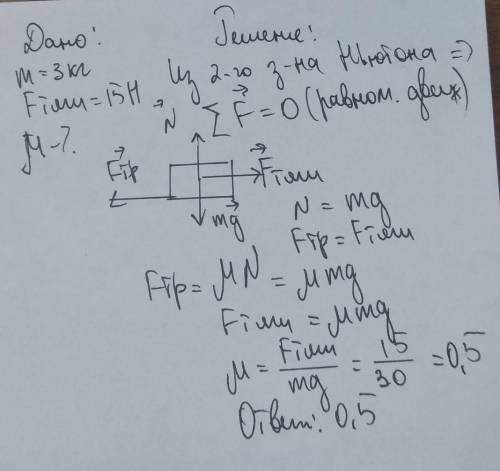 Дано:
Решение:
m = 3 кг
Fтяги = 15 Н
μ - ?
Из 2-го з-на Ньютона =>
∑F⃗ = 0 (равном. движ)
N⃗
F⃗тр
F⃗тяги
mg⃗
N = mg
Fтр = Fтяги
Fтр = μN = μmg
Fтяги = μmg
μ = Fтяги/mg = 15/30 = 0,5
Ответ: 0,5